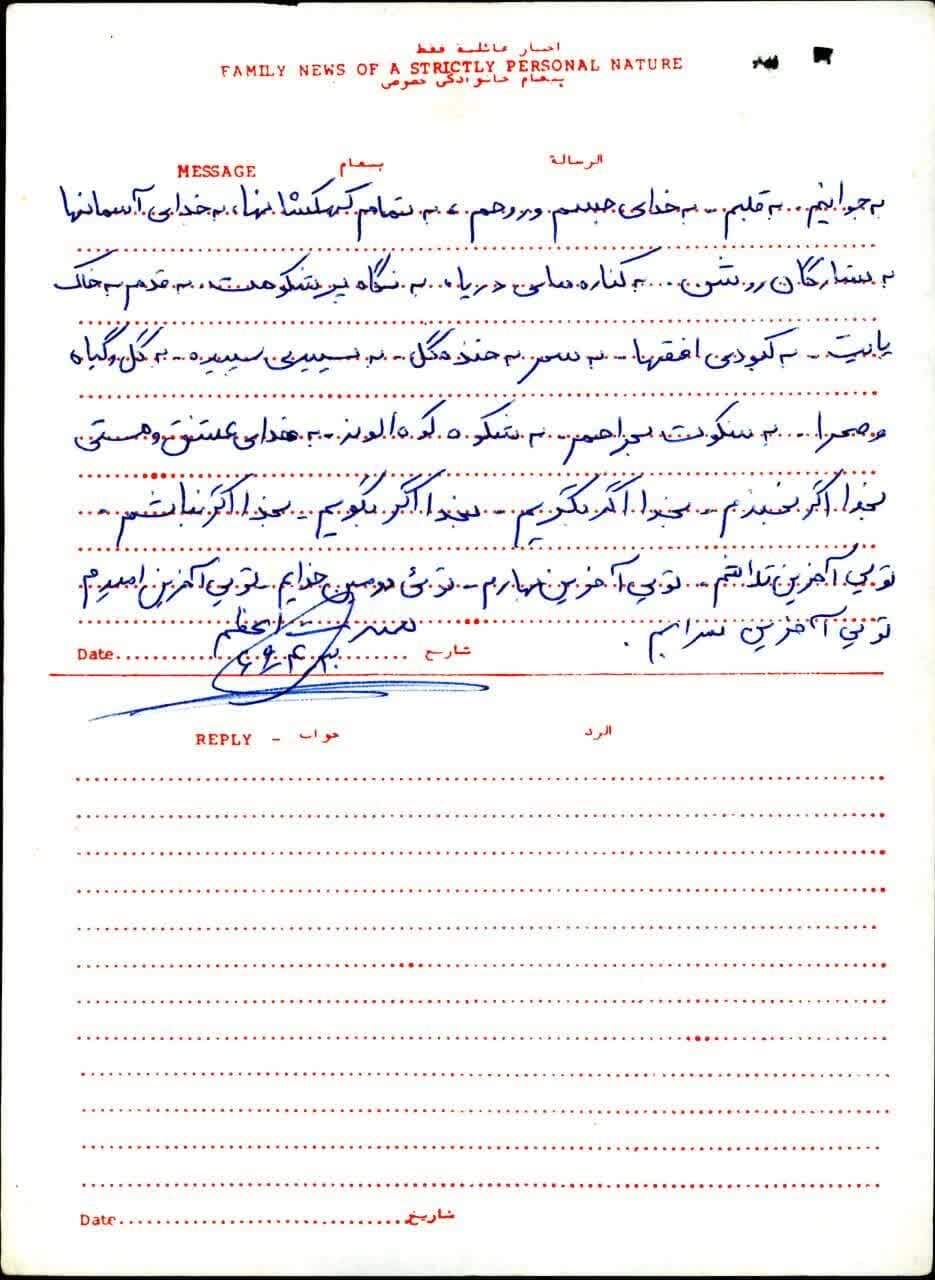 اخبار عائلية فقط
FAMILY NEWS OF A STRICTLY PERSONAL NATURE
پیغام خانوادگی خصوصی
MESSAGE پیغام الرسالة
به جوانیم.. به قلبم - به خدای جسم و روحم، به تمام کهکشانها، به خدای آسمانها
به ستارگان روشن... به کناره های دریا، به نگاه پر شکوهت، به قدم به خاک
پایت - به کبودی افقها - به سحر به خنده گل - به سپیدی سپیده - به گل و گیاه
و صحرا - به سکوت - به شکوه کوه الوند - به خدای عشق و هستی
بخدا اگر بخندم - بخدا اگر بگریم - بخدا اگر بگویم - بخدا اگر نباشم -
تویی آخرین تلاشم - تویی آخرین بهارم - توئی دومین خدایم - تویی آخرین امیدم
تویی آخرین سرابم.
Date تاریخ
REPLY - جواب الرد
Date تاریخ